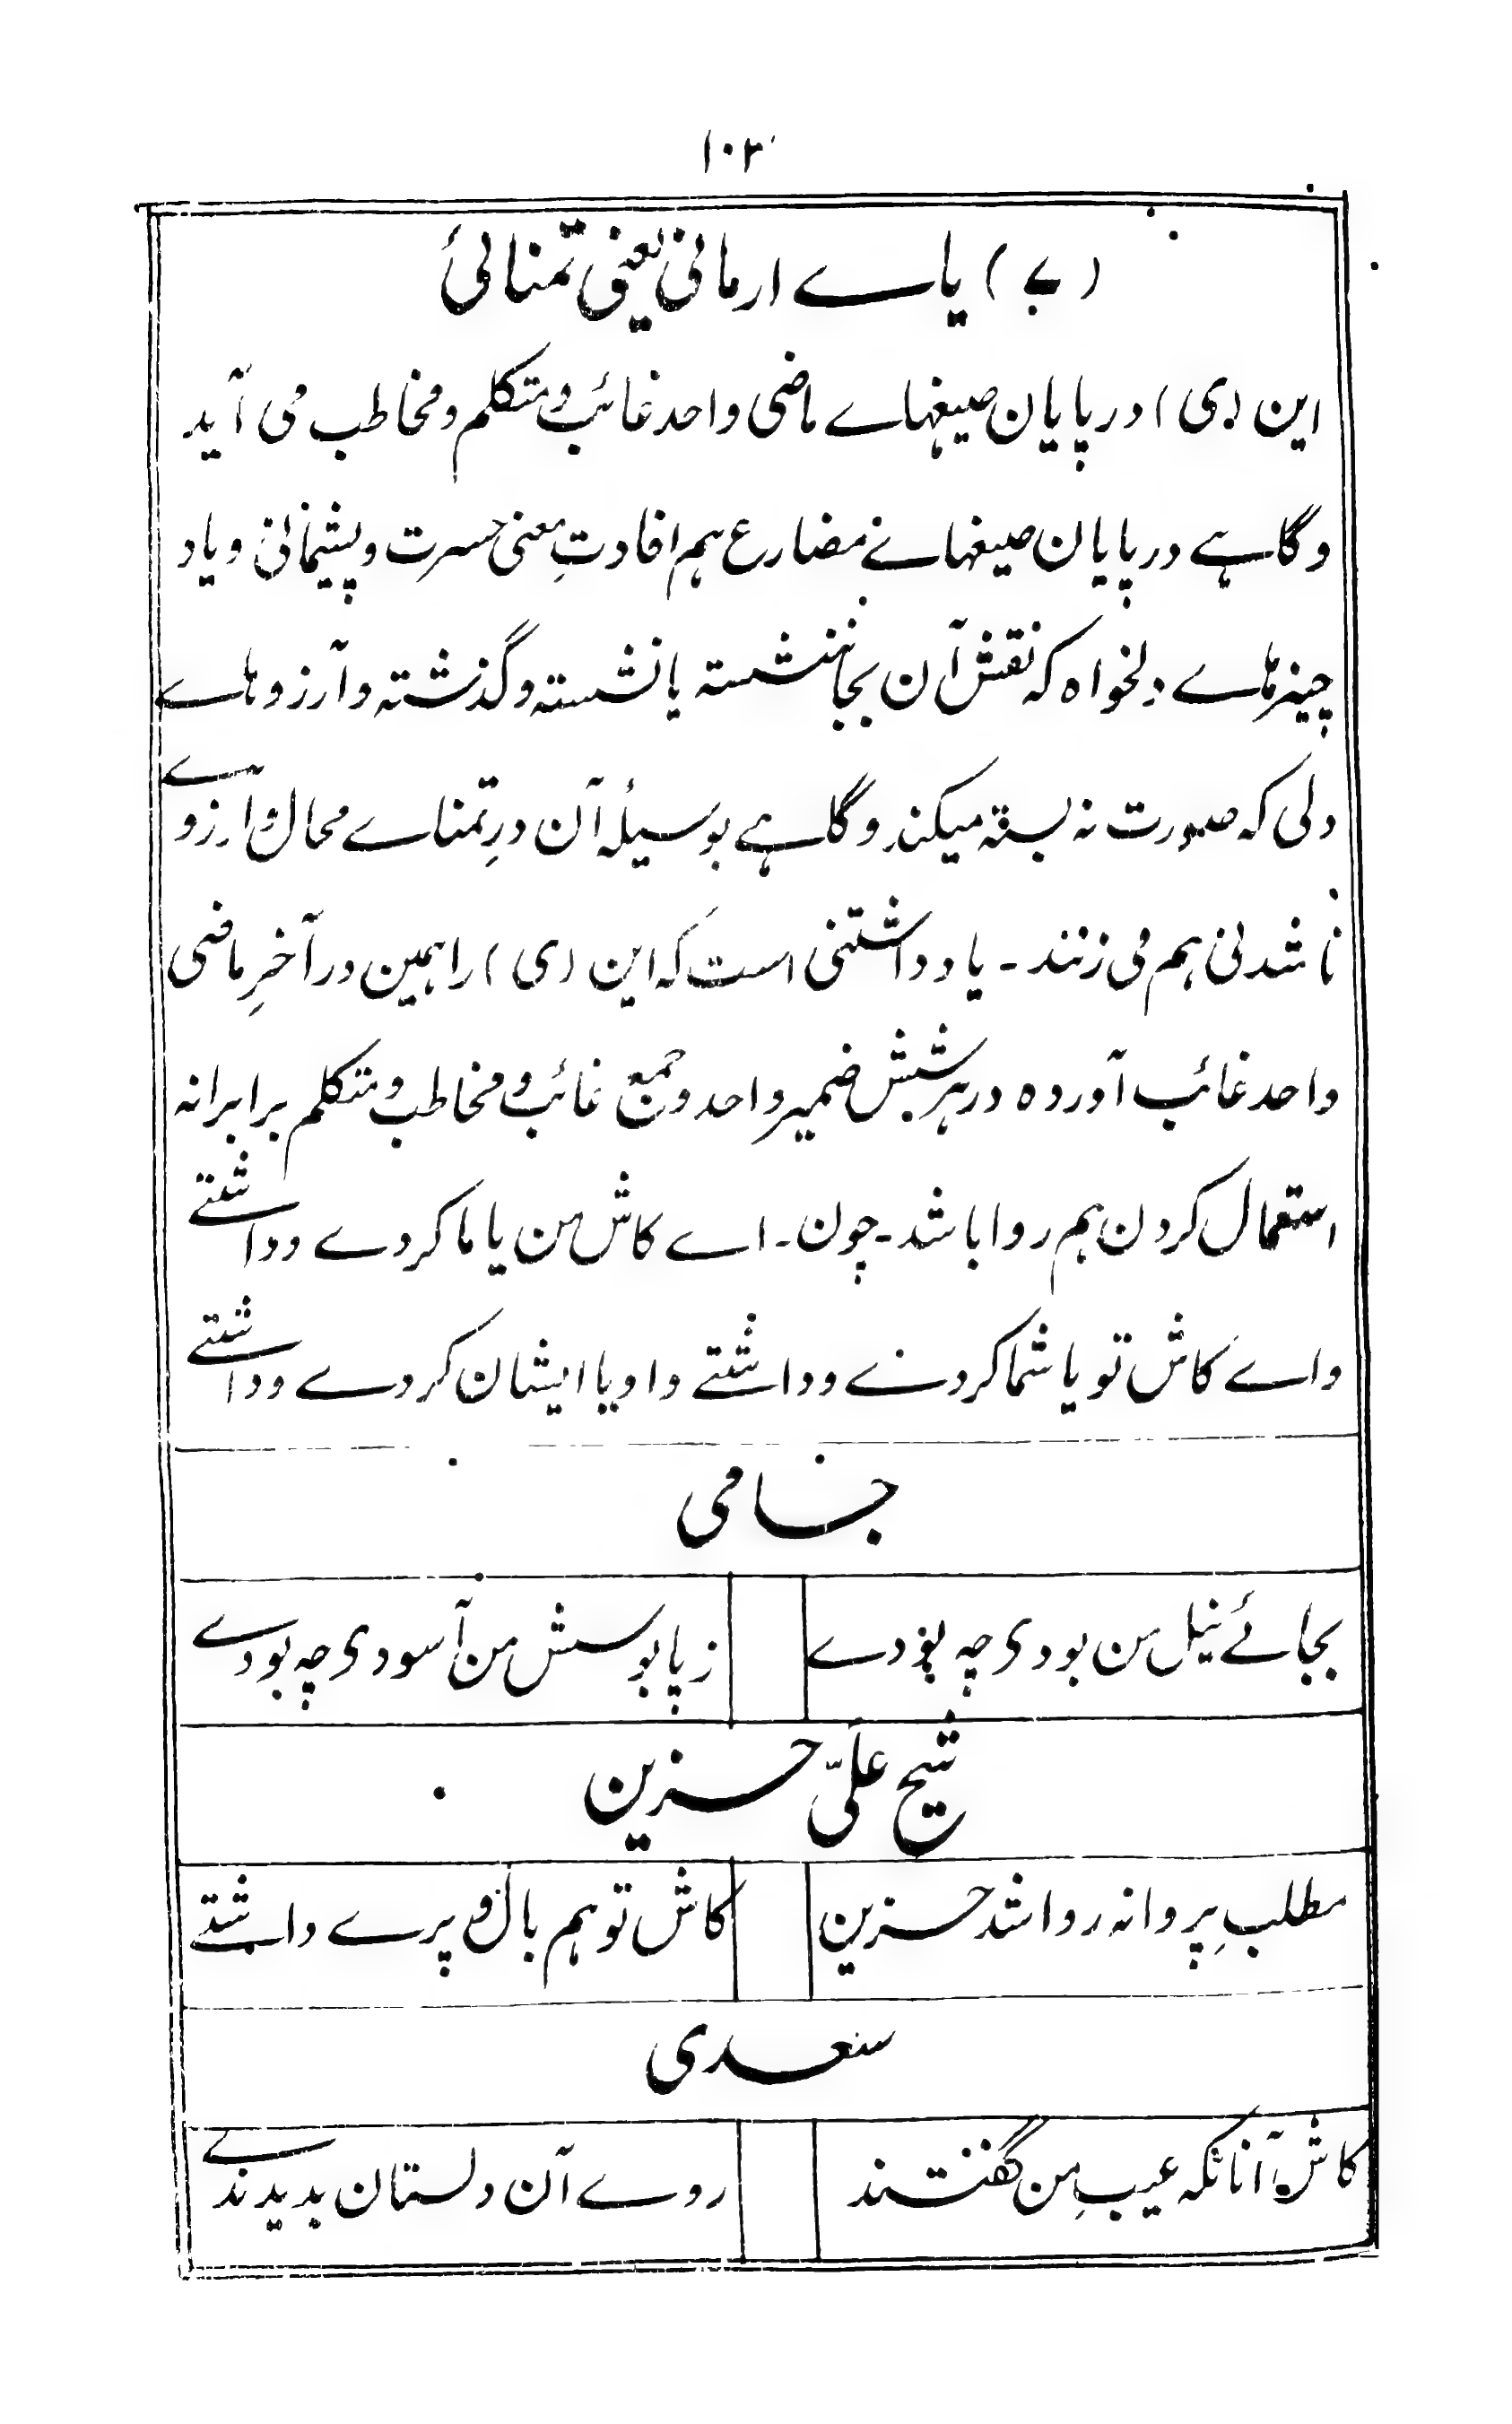 ۱۰۲
(۷) یاے ارمانی یعنی تمنائی
این (ی) در پایان صیغہاے ماضی واحد غائب و متکلم و مخاطب می آید
و گاہے در پایان صیغہاے مضارع ہم افادتِ معنی حسرت و پشیمانی و یاد
چیزہاے دلخواہ کہ نقش آن بجا ننشستہ یا نشستہ و گذشتہ و آرزوہاے
دلی کہ صورت نہ بستہ میکند و گاہے بوسیلۂ آن درِ تمناے محال و آرزوے
ناشدنی ہم می زنند ـ یاد داشتنی است کہ این (ی) را ہمین در آخرِ ماضی
واحد غائب آوردہ در ہر شش ضمیر واحد و جمع غائب و مخاطب و متکلم برابرانہ
استعمال کردن ہم روا باشد ـ چون ـ اے کاش من یا ما کردے و داشتے
و اے کاش تو یا شما کردے و داشتے و او یا ایشان کردے و داشتے
جامی
بجائے نیل من بودی چہ بودے
ز پابوسش من آسودی چہ بودے
شیخ علی حزین
مطلبِ پروانہ روا شد حزین
کاش تو ہم بال و پرے داشتے
سعدی
کاش آنانکہ عیبِ من گفتند
روے آن دلستان بدیدندے